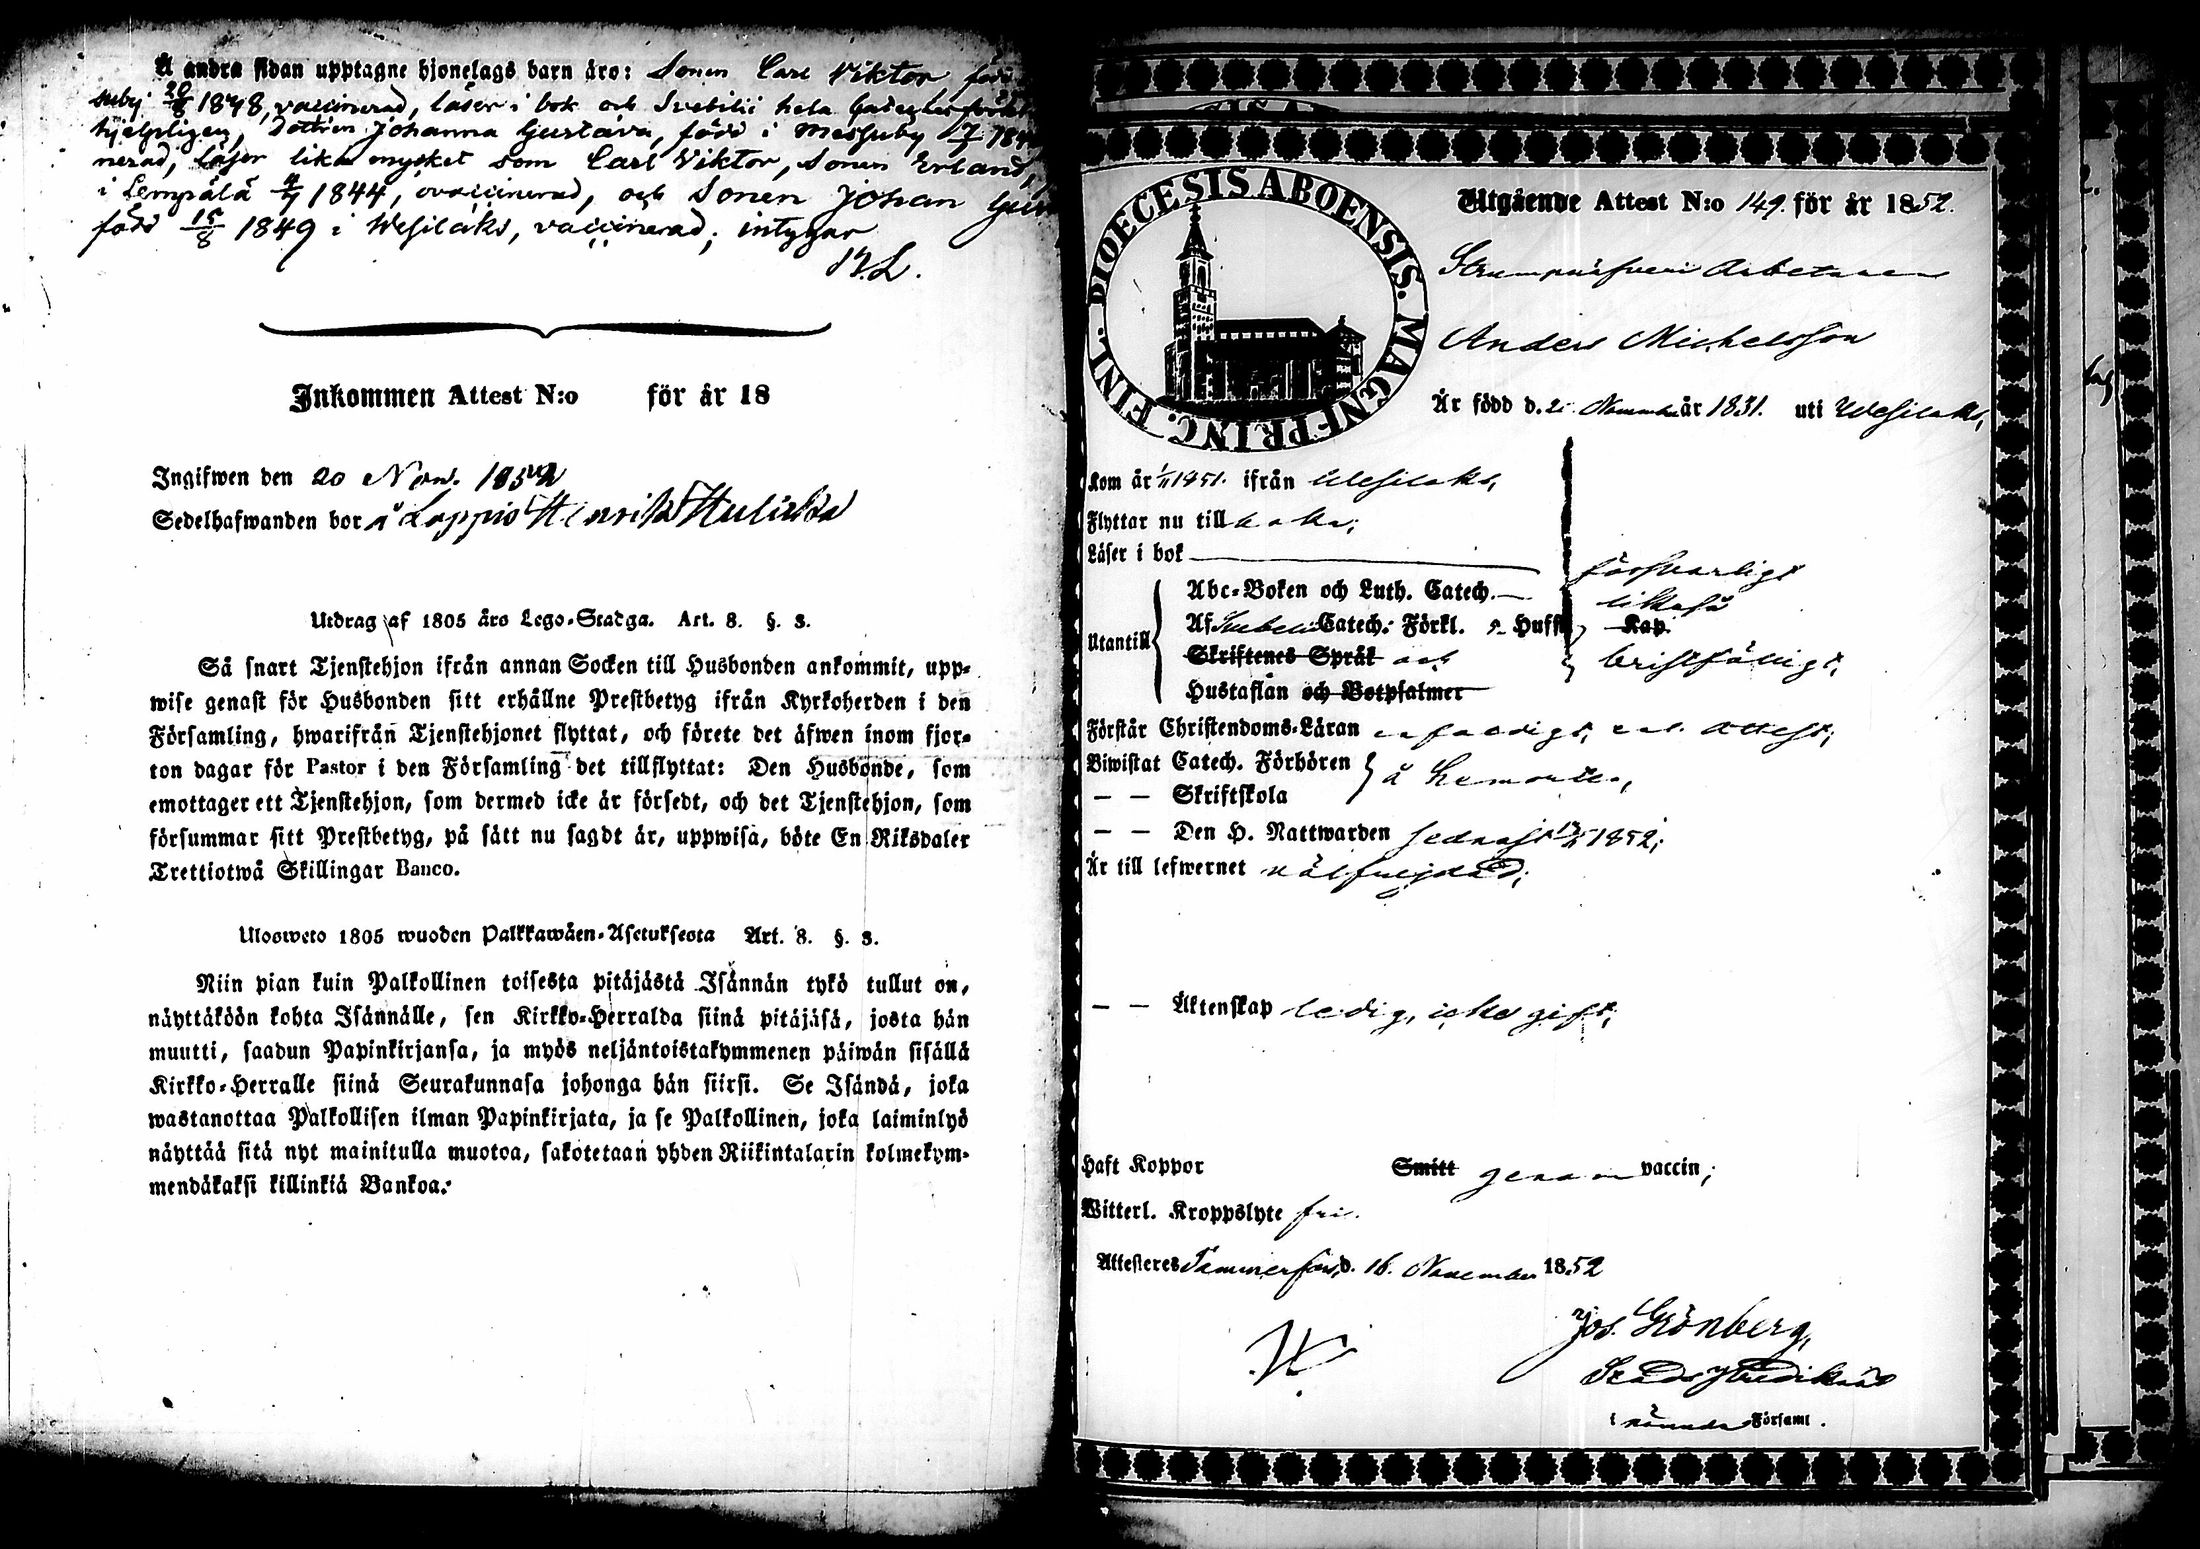 Å andra sidan upptagne hjonelags barn äro: Sonen Carl Viktor född
suby 20/8 1848, vaccinerad, läser i bok och Svebilii hela
hjelpligen, Dottren Johanna Gustava, född i Messuby
nerad, läser lika mycket som Carl Viktor, Sonen Erland,
i Lempälä 4/7 1844, ovaccinerad, och Sonen Johan
född 15/8 1849 i Wesilaks, vaccinerad; intygar
Inkommen Attest N:o för år 18
Ingifwen den 20 Nov. 1852
Sedelhafwanden bor å Loppis Henrik
Utdrag af 1805 års Lego-Stadga. Art. 8. §. 3.
Så snart Tjenstehjon ifrån annan Socken till Husbonden ankommit, upp-
wise genast för Husbonden sitt erhållne Prestbetyg ifrån Kyrkoherden i den
Församling, hwarifrån Tjenstehjonet flyttat, och förete det äfwen inom fjor-
ton dagar för Pastor i den Församling det tillflyttat: Den Husbonde, som
emottager ett Tjenstehjon, som dermed icke är försedt, och det Tjenstehjon, som
försummar sitt Prestbetyg, på sätt nu sagdt är, uppwisa, böte En Riksdaler
Trettiotwå Skillingar Banco.
Ulosweto 1805 wuoden Palkkawäen-Asetuksesta Art. 8. §. 3.
Niin pian kuin Palkollinen toisesta pitäjästä Isännän tykö tullut on,
näyttäköön kohta Isännälle, sen Kirkko-Herralda siinä pitäjäsä, josta hän
muutti, saadun Papinkirjansa, ja myös neljäntoistakymmenen päiwän sisällä
Kirkko-Herralle siinä Seurakunnasa johonga hän siirsi. Se Isändä, joka
wastanottaa Palkollisen ilman Papinkirjata, ja se Palkollinen, joka laiminlyö
näyttää sitä nyt mainitulla muotoa, sakotetaan yhden Riikintalarin kolmekym-
mendäkaksi killinkiä Bankoa.
DIOECESIS ABOENSIS. MAGNI PRINC. FINL.
Utgående Attest N:o 149. för år 1852.
Arbetaren
Anders Michelsson
Är född d. November år 1831. uti Wesilaks,
Kom år 1/11 1851. ifrån Wesilaks,
Flyttar nu till
Läser i bok försvarligt
Abc-Boken och Luth. Catech. likaså
Utantill
Af Svebelii Catech: Förkl. Huff Kap.
Skriftenes Språk och bristfälligt,
Hustaflan och Botpsalmer
Förstår Christendoms-Läran enfaldigt, enl. Attest,
Biwistat Catech. Förhören
— — Skriftskola
— — Den H. Nattwarden sednast 1852;
Är till lefwernet välfrejdad;
— — Äktenskap ledig, icke gift;
Haft Koppor Smitt genom vaccin;
Witterl. Kroppslyte fri.
Attesteres Tammerfors d. 16. November 1852
Jos. Grönberg,
i nämnde Församl.